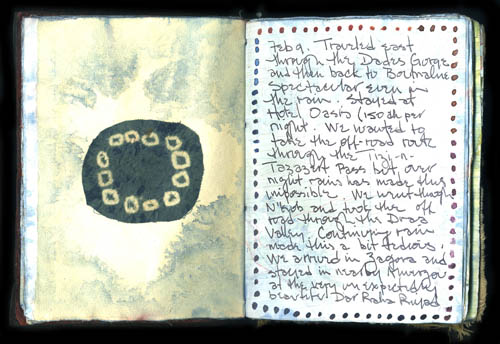 Feb 9. Traveled east
through the Dades Gorge
and then back to Boumalne
Spectacular even in
the rain. Stayed at
Hotel Oasis (150 dh per
night. We wanted to
take the off-road route
through the Tizi-n-
Tazazert Pass but over
night rains has made this
impossible. We went through
N'kob and took the off
road through the Draa
Valley. Continuing rain
made this a bit tedious.
We arrived in Zagora and
stayed in
at the very unexpectedly
beautiful Dar Raha